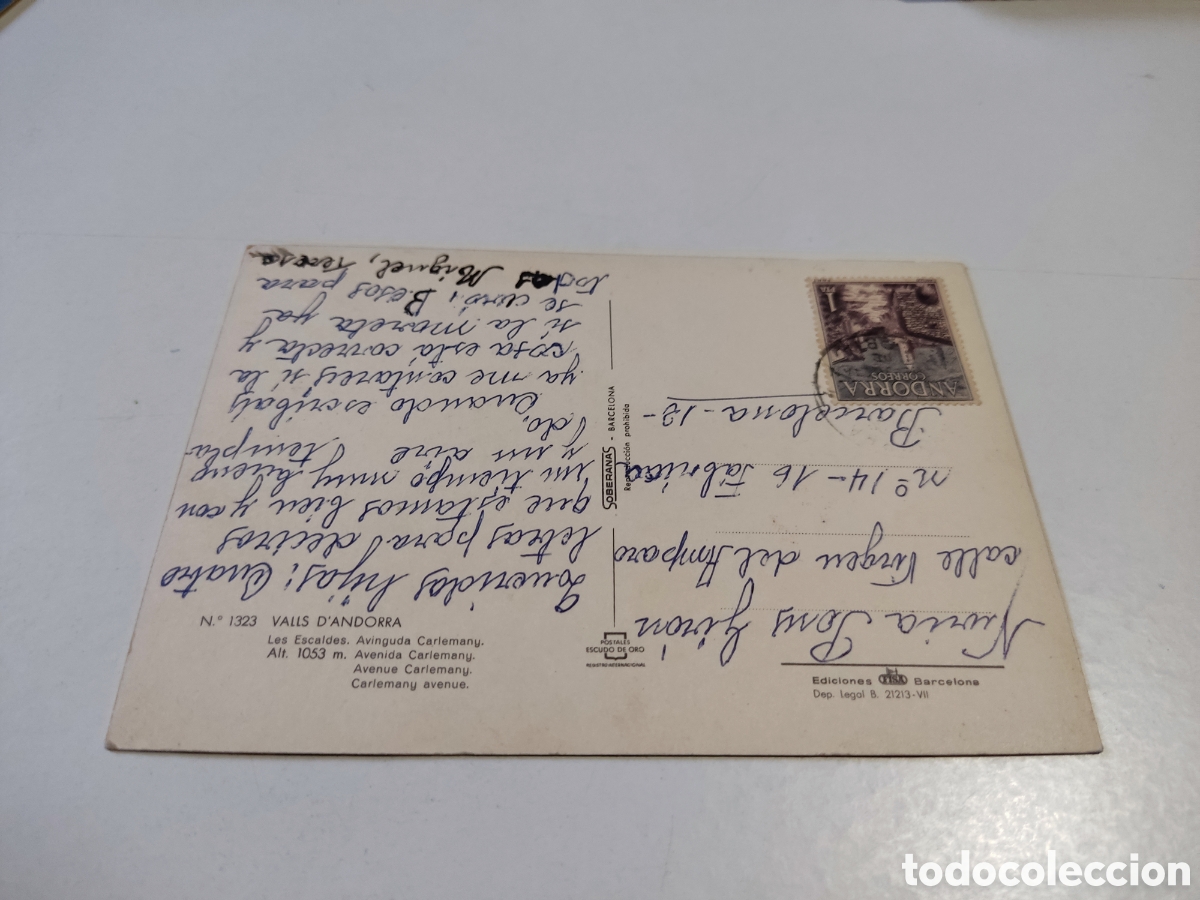 N.º 1323 VALLS D'ANDORRA
Les Escaldes. Avinguda Carlemany.
Alt. 1053 m. Avenida Carlemany.
Avenue Carlemany.
Carlemany avenue.
Queridas hijas: Cuatro
letras para deciros
que estamos bien y con
un tiempo muy bueno
y un aire templa-
do.
Cuando escribais
ya me contareis si la
cosa está correcta y
si la moreta ya
se curó; Besos para
todas Miguel, Teresa
POSTALES
ESCUDO DE ORO
REGISTRO INTERNACIONAL
SOBERANAS - BARCELONA
Reproducción prohibida
ANDORRA
CORREOS
1
PTA
Nuria Pons Girón
calle Virgen del Amparo
nº 14-16 Fabrica
Barcelona-13-
Ediciones FISA Barcelona
Dep. Legal B. 21213-VII
todocoleccion